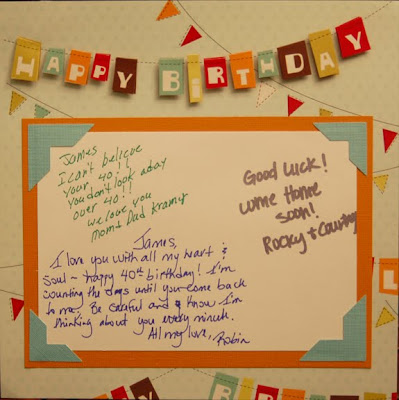 HAPPY BIRTHDAY
James
I can't believe
your 40!!
You don't look a day
over 40!!
we love you
Mom & Dad Kramer
Good Luck!
Come Home
soon!
Rocky & Courtney
James,
I love you with all my heart &
soul ~ happy 40th birthday! I'm
counting the days until you come back
to me. Be careful and know I'm
thinking about you every minute.
All my love, Robin
L
BIR